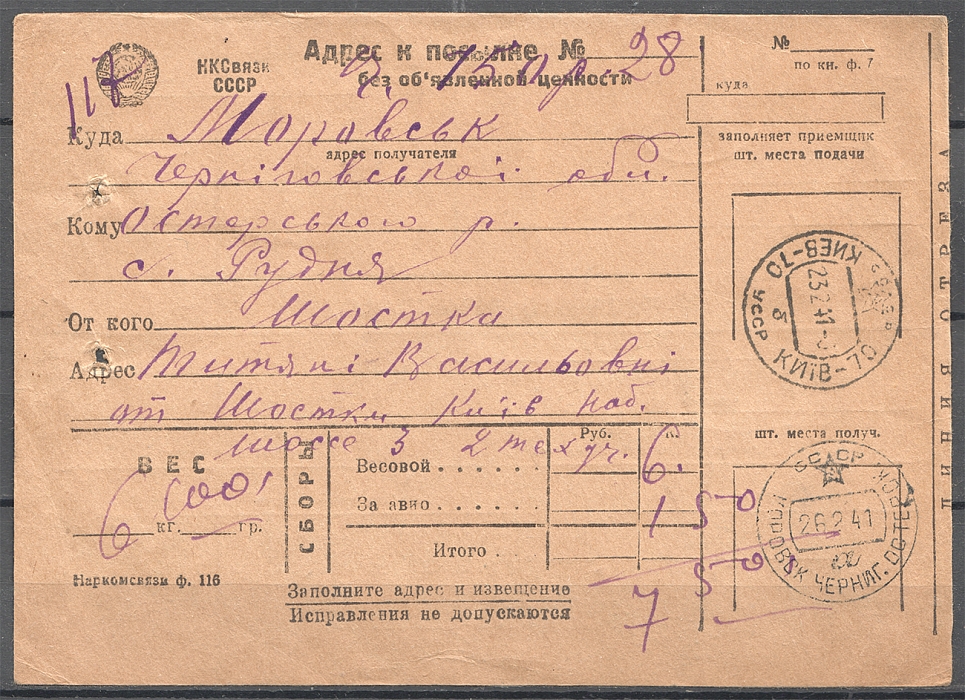 НКСвязи
СССР
Адрес к посылке №
28
без об‘явленной ценности
№
по кн. ф. 7
куда
заполняет приемщик
шт. места подачи
Куда Моровськ
адрес получателя
Чернiговськоi обл.
Кому Остерського р.
с. Рудня
От кого Шостка
Адрес Титянi Васильовнi
от Шостки Київ наб.
шоссе 3 2
КИЕВ-70
23 2 41
УССР
КИЇВ-70
ЛИНИЯ ОТРЕЗА
ВЕС
6 кг. гр.
СБОРЫ
Руб.
Весовой 6.
За авио 1 50
Итого 7 50
шт. места получ.
СССР
26 2 41
ЧЕРНИГ.
Наркомсвязи ф. 116
Заполните адрес и извещение
Исправления не допускаются